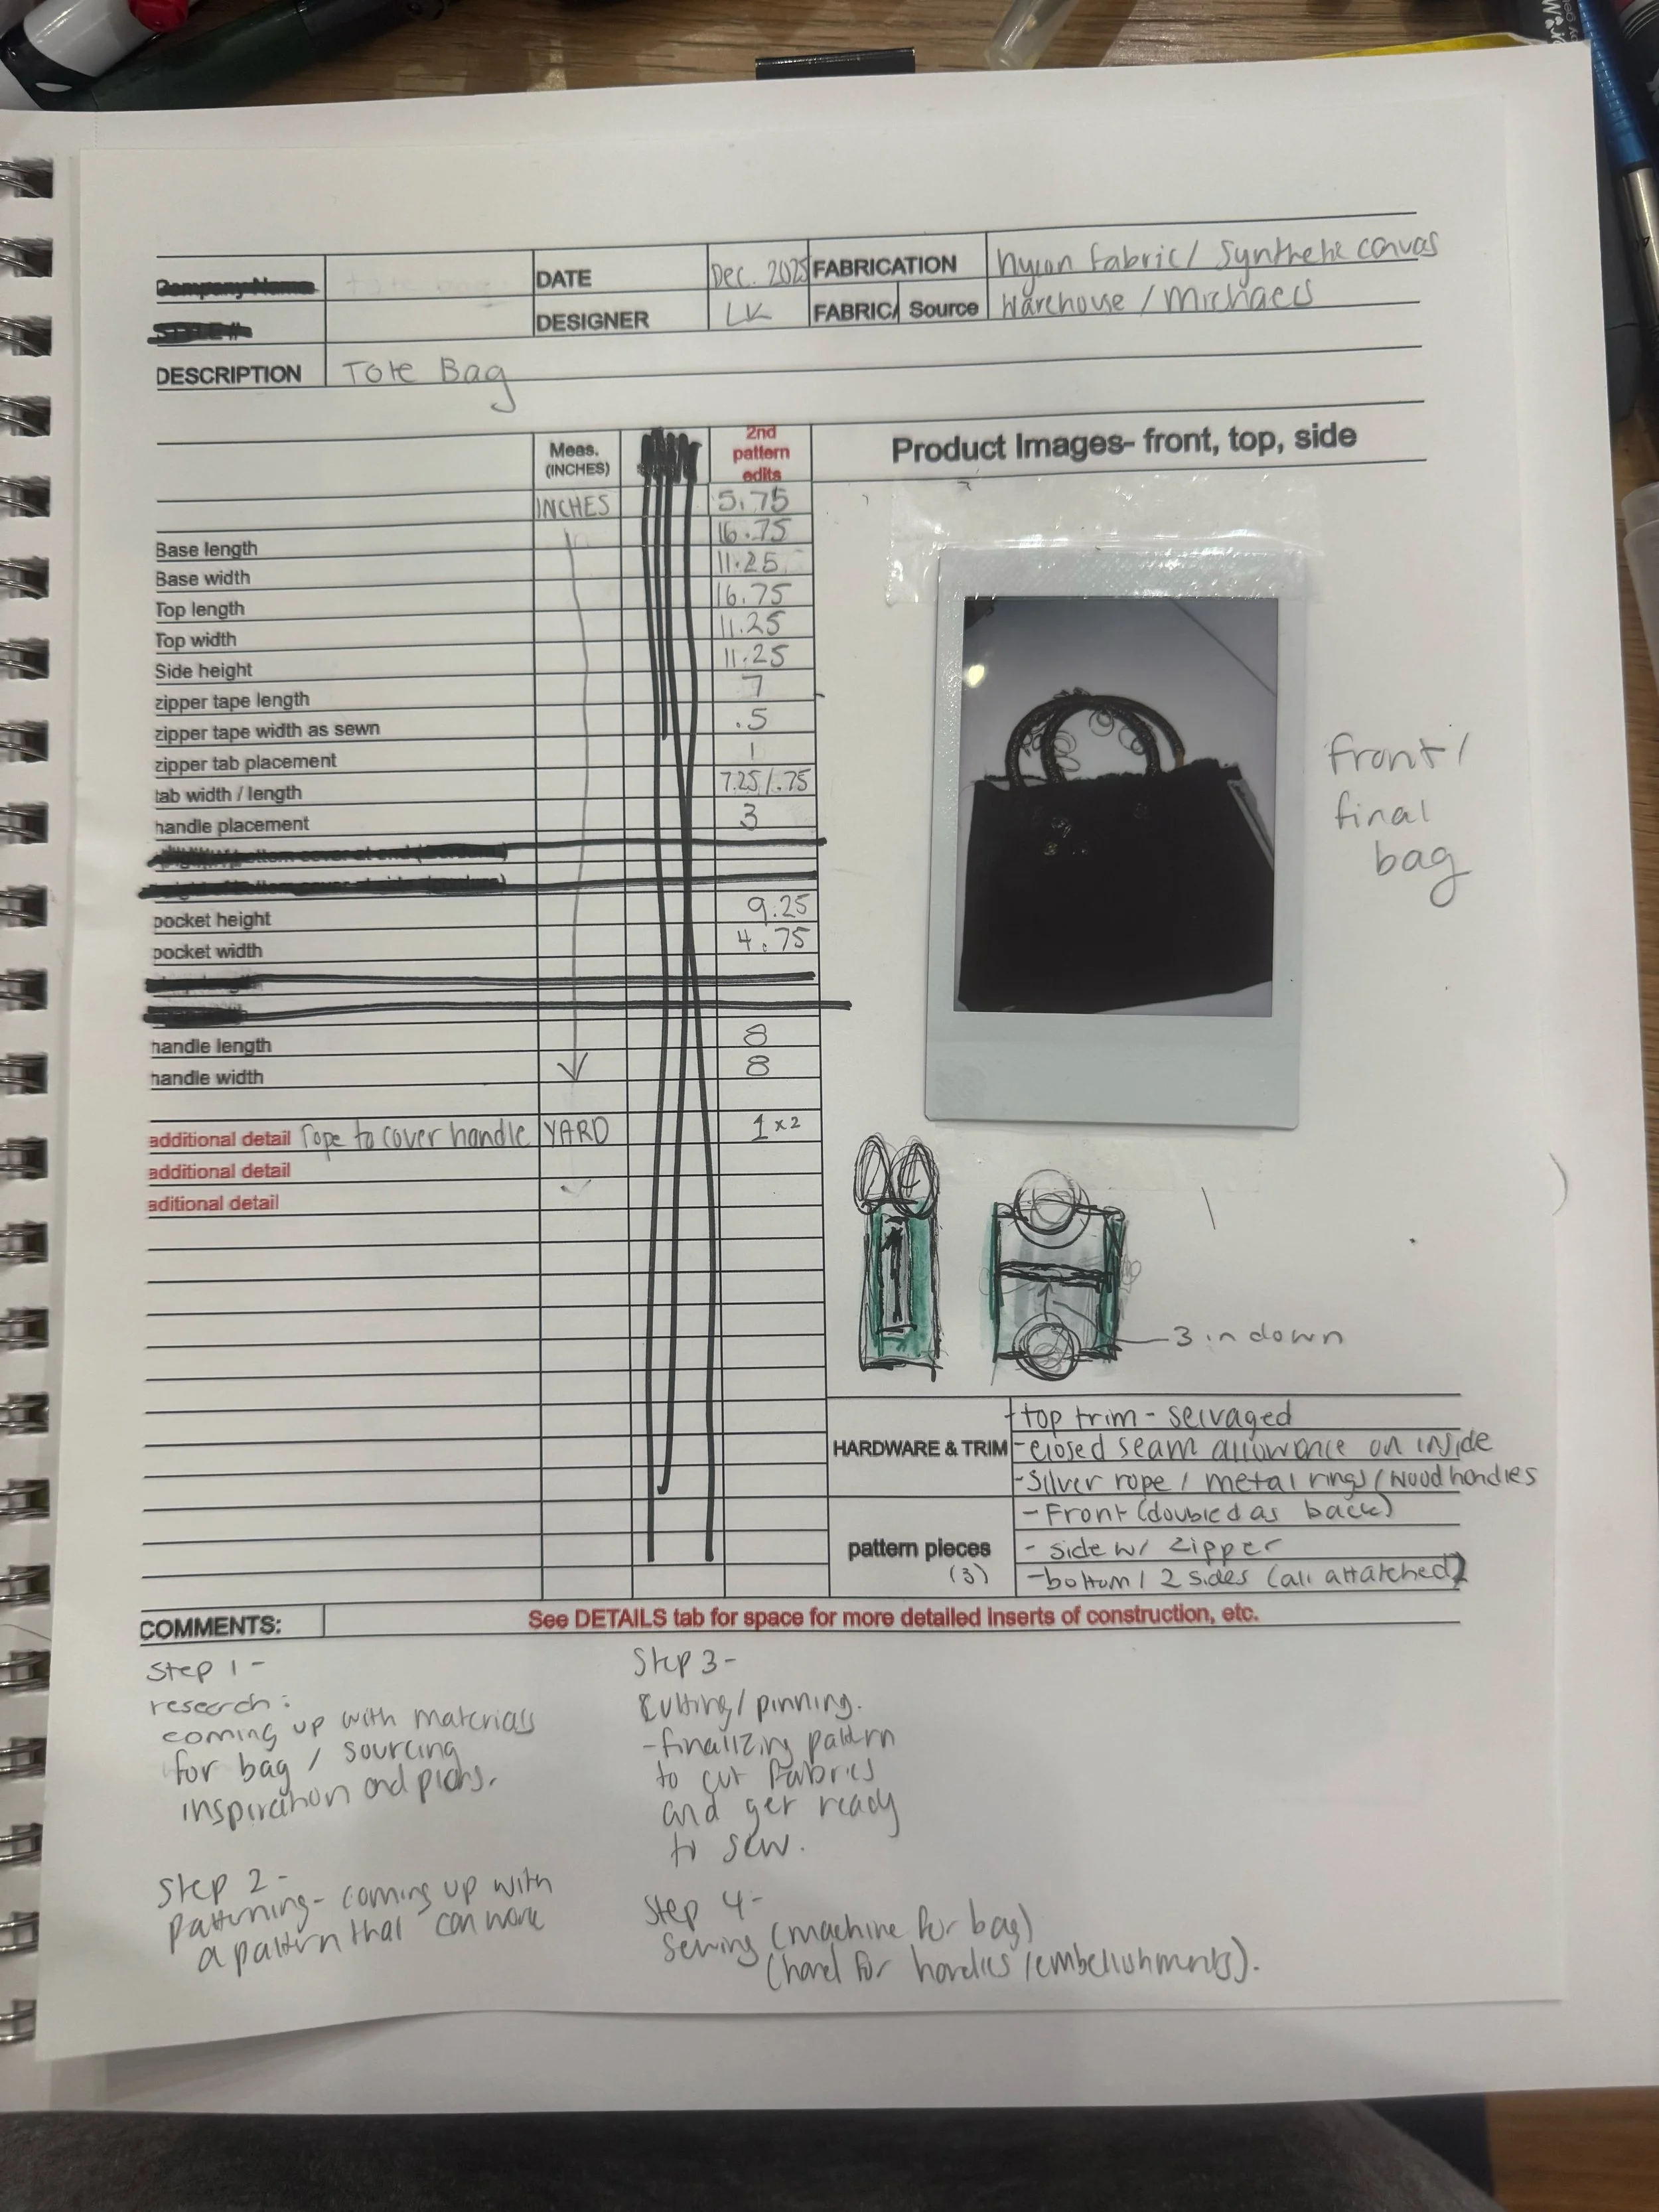 DATE Dec. 2025 FABRICATION nylon fabric/ Synthetic canvas
DESIGNER LK FABRIC/ Source Warehouse / Michaels
DESCRIPTION Tote Bag
Meas. (INCHES) 2nd pattern edits Product Images- front, top, side
INCHES 5.75
Base length 16.75
Base width 11.25
Top length 16.75
Top width 11.25
Side height 11.25
zipper tape length 7
zipper tape width as sewn .5
zipper tab placement 1
tab width / length 7.25/.75
handle placement 3
pocket height 9.25
pocket width 4.75
handle length 8
handle width 8
additional detail rope to cover handle YARD 1 x2
additional detail
aditional detail
front/
final
bag
3 in down
HARDWARE & TRIM
-top trim - selvaged
-closed seam allowance on inside
-Silver rope / metal rings / wood handles
pattern pieces
(3)
- Front (doubled as back)
- side w/ zipper
-bottom / 2 sides (all attatched)
COMMENTS: See DETAILS tab for space for more detailed inserts of construction, etc.
Step 1 -
research:
coming up with materials
for bag / sourcing
inspiration and plans.
Step 2 -
Patterning- coming up with
a pattern that can work
Step 3 -
Cutting/ pinning.
-finalizing pattern
to cut fabrics
and get ready
to sew.
Step 4 -
Sewing (machine for bag)
(hand for handles /embellishments).